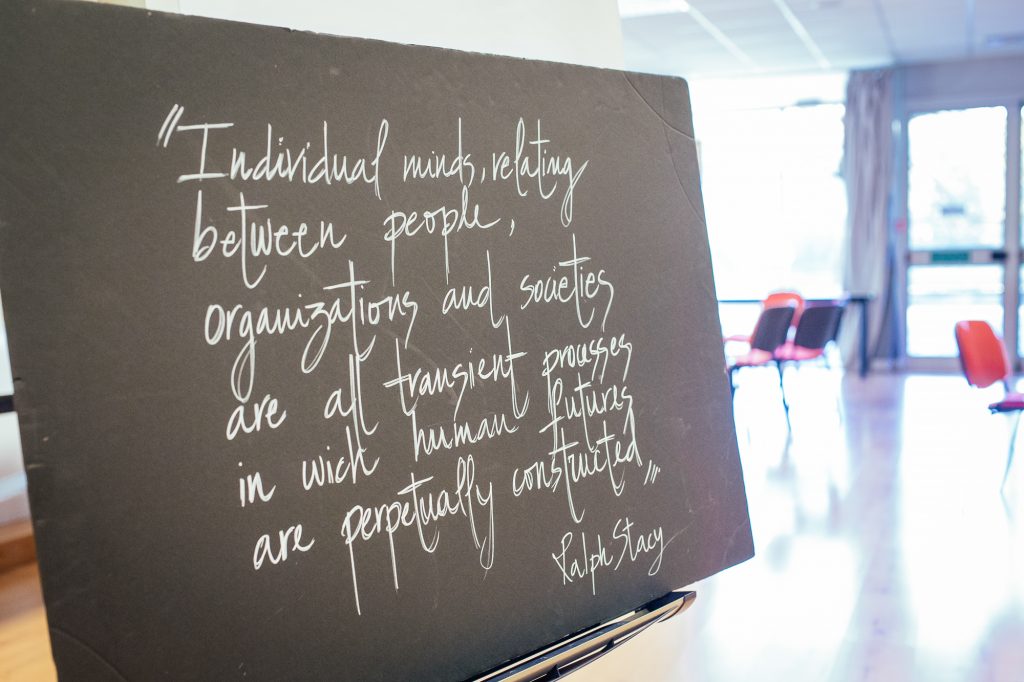 "Individual minds, relating
between people,
organizations and societies
are all transient processes
in wich human futures
are perpetually constructed"
Ralph Stacy